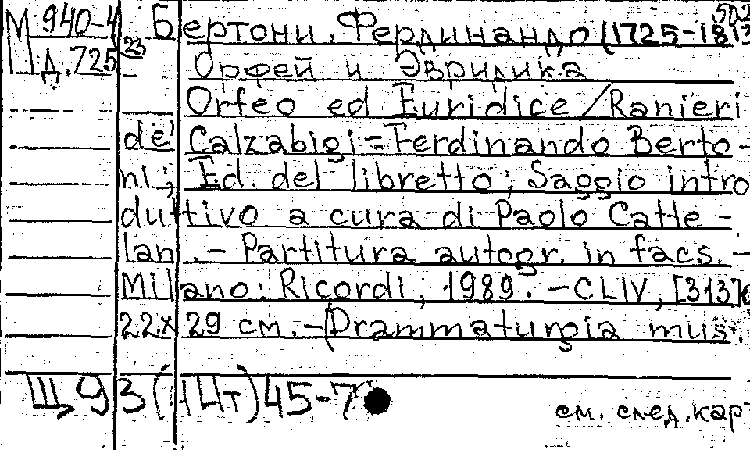 М 940-4
Мд.725
23
502
Бертони, Фердинандо (1725-1813
Орфей и Эвридика
Orfeo ed Euridice / Ranieri
de' Calzabigi = Ferdinando Berto-
ni; Ed. del libretto; Saggio intro
duttivo a cura di Paolo Catte-
lan. - Partitura autogr. in facs. -
Milano: Ricordi, 1989. - CLIV, [313]
22x29 см. - (Drammaturgia mus.
Щ93(4Ит)45-7
см. след. карт